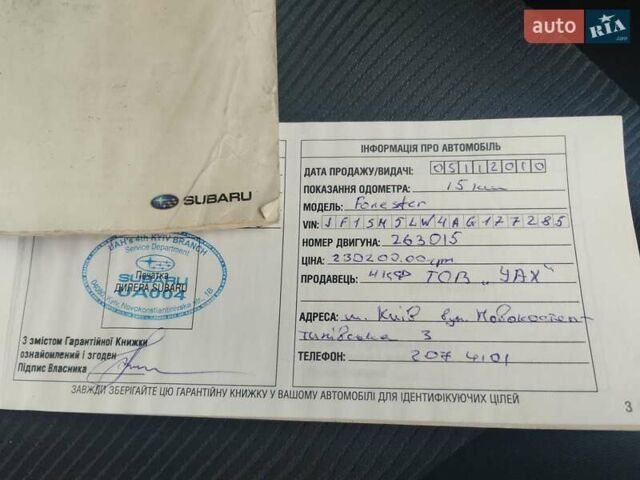 auto RIA.com
SUBARU
ІНФОРМАЦІЯ ПРО АВТОМОБІЛЬ
ДАТА ПРОДАЖУ/ВИДАЧІ: 05112010
ПОКАЗАННЯ ОДОМЕТРА: 15 km
МОДЕЛЬ: Forester
VIN: JF1SH5LW4AG177285
НОМЕР ДВИГУНА: 263015
ЦІНА: 230200.00 грн
ПРОДАВЕЦЬ: ТОВ „УАХ"
АДРЕСА: м. Київ вул. Новокостян-
тинівська 3
ТЕЛЕФОН: 207 4101
UAH's 4th KYIV BRANCH
Service Department
SUBARU
Печатка
ДИЛЕРА SUBARU
UA004
04080 Kyiv, Novokonstiantinivska str. 1B
З змістом Гарантійної Книжки
ознайомлений і згоден
Підпис Власника
ЗАВЖДИ ЗБЕРІГАЙТЕ ЦЮ ГАРАНТІЙНУ КНИЖКУ У ВАШОМУ АВТОМОБІЛІ ДЛЯ ІДЕНТИФІКУЮЧИХ ЦІЛЕЙ
3